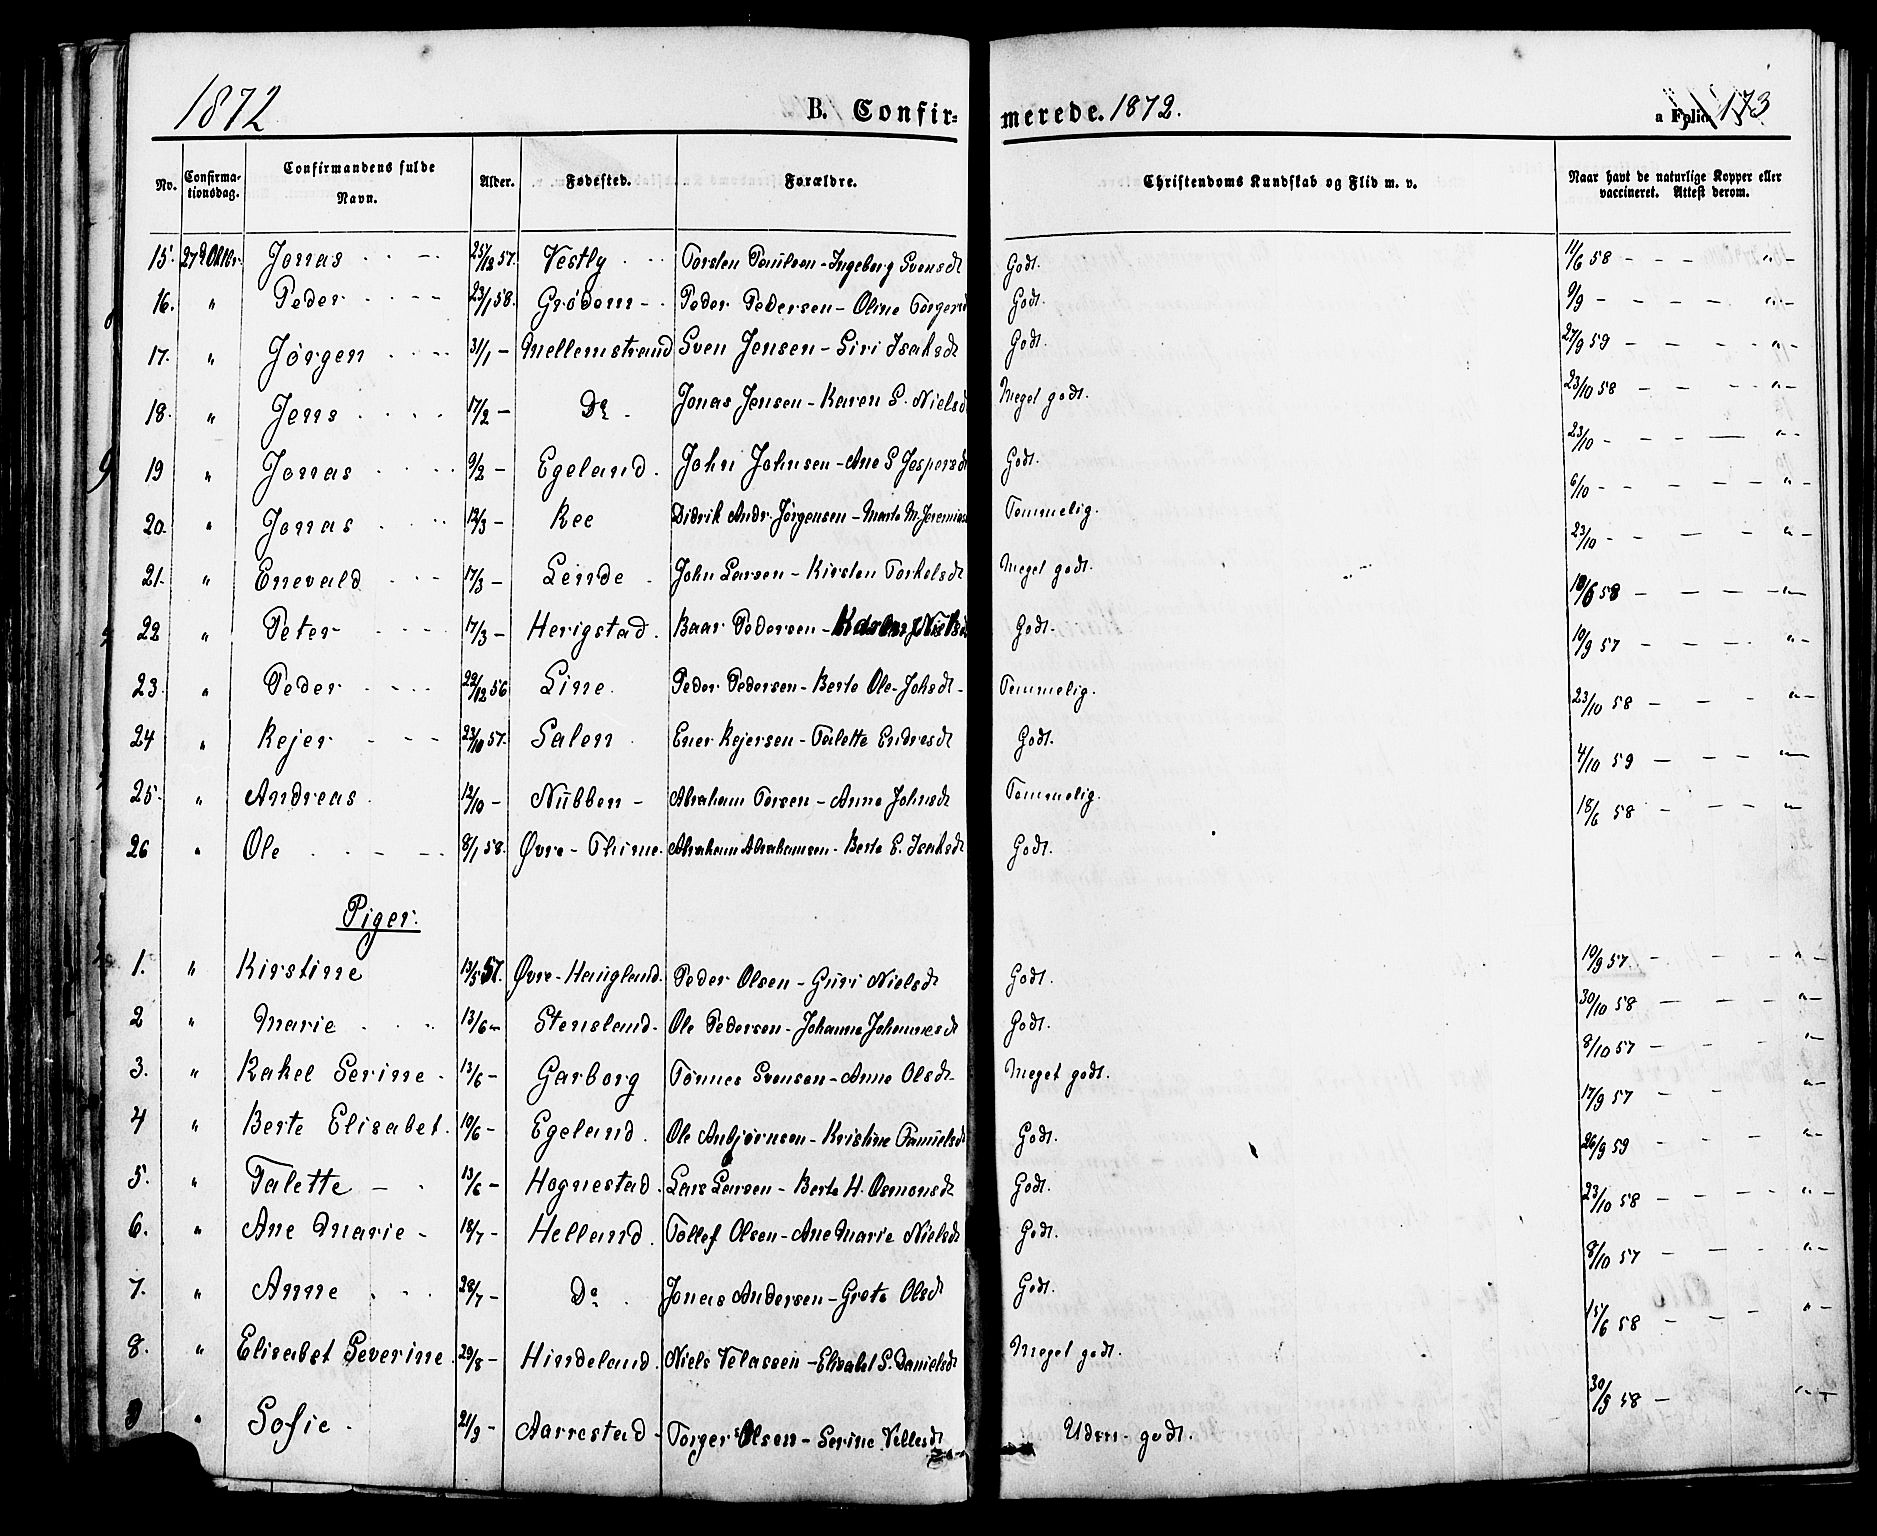 1872 B. Confir= merede. 1872. a Folio 173
No. Confirma-tionsdag. Confirmandens fulde Navn. Alder. Fødested. Forældre. Christendoms Kundskab og Flid m. v. Naar havt de naturlige Kopper eller vaccineret. Attest derom.
15. 27d Oktbr. Jonas 25/12 57. Vestly Torsten Paulsen - Ingeborg Svensdt Godt. 11/6 58 - - - " -
16. " Peder 23/1 58. Grødem - Peder Pedersen - Oline Torgersd Godt. 9/9 - - - - - " -
17. " Jørgen 31/1 - Mellemstrand Sven Jensen - Siri Isaksdt Godt. 27/9 59 - - - - " -
18. " Jens 17/2 - Do. Jonas Jensen - Karen S. Nielsd Meget godt. 23/10 58 - - - " -
19 " Jonas 9/2 - Egeland. John Johnsen - Ane S Jespersdt Godt. 23/10 - - - - " -
20. " Jonas 12/3 - Ree Didrik Andr. Jørgensen - Marte M. Jeremias Temmelig. 6/10 - - - - - " -
21. " Enevald 17/3 - Lende John Larsen - Kirsten Torkelsdt Meget godt. 23/10 - - - - " -
22 " Peter 17/3 - Herigstad. Baar Pedersen - Karen J Nielsd Godt. 10/6 58 - - - - " -
23. " Peder 22/12 56 Line. Peder Pedersen - Berte Ole-Johsdt - Temmelig. 10/9 57 - - - - " -
24 " Rejer 23/10 57. Salen Ener Rejersen - Talette Endresdt Godt. 23/10 58 - - - " -
25. " Andreas 12/10 - Nubben - Abraham Torsen - Anne Johnsdt Temmelig. 4/10 59 - - - - " -
26 " Ole 8/1 58. Øvre-Thime. Abraham Abrahamsen - Berte E. Isaksdt Godt. 18/6 58 - - - "
Piger.
1. " Kirstine 13/5 57. Øvre-Haugland. Peder Olsen - Guri Nielsdt Godt. 10/9 57 - - - - " -
2 " Marie 13/6 - Stensland. Ole Pedersen - Johanne Johannesdt Godt. 30/10 58 - - - - " -
3. " Rakel Serine - 13/6 - Garborg Tønnes Svensen - Anne Olsdt - Meget godt. 8/10 57 - - - " -
4 " Berte Elisabet. 10/6 - Egeland. Ole Anbjørnsen - Kristine Samuelsdt Godt. 17/9 57 - - " -
5. " Talette - 13/6 - Hognestad. Lars Larsen - Berte H. Osmonsdt Godt. 26/9 59 - - - " -
6. " Ane Marie - 18/7 - Helland. Tollef Olsen - Ane Marie Nielsdt Godt. 23/10 58 - - - - " -
7. " Anne 28/7 - Do. Jonas Andersen - Grete Olsdt Godt. 8/10 57 - - - " -
8. " Elisabet Severine. 29/8 - Hindeland. Niels Velassen - Elisabet S. Danielsdt Meget godt. 15/6 58 - - - " -
9 " Sofie - 21/9 - Aarrestad - Torger Olsen - Serine Vellesdt Udm. godt. 30/9 58 - " -